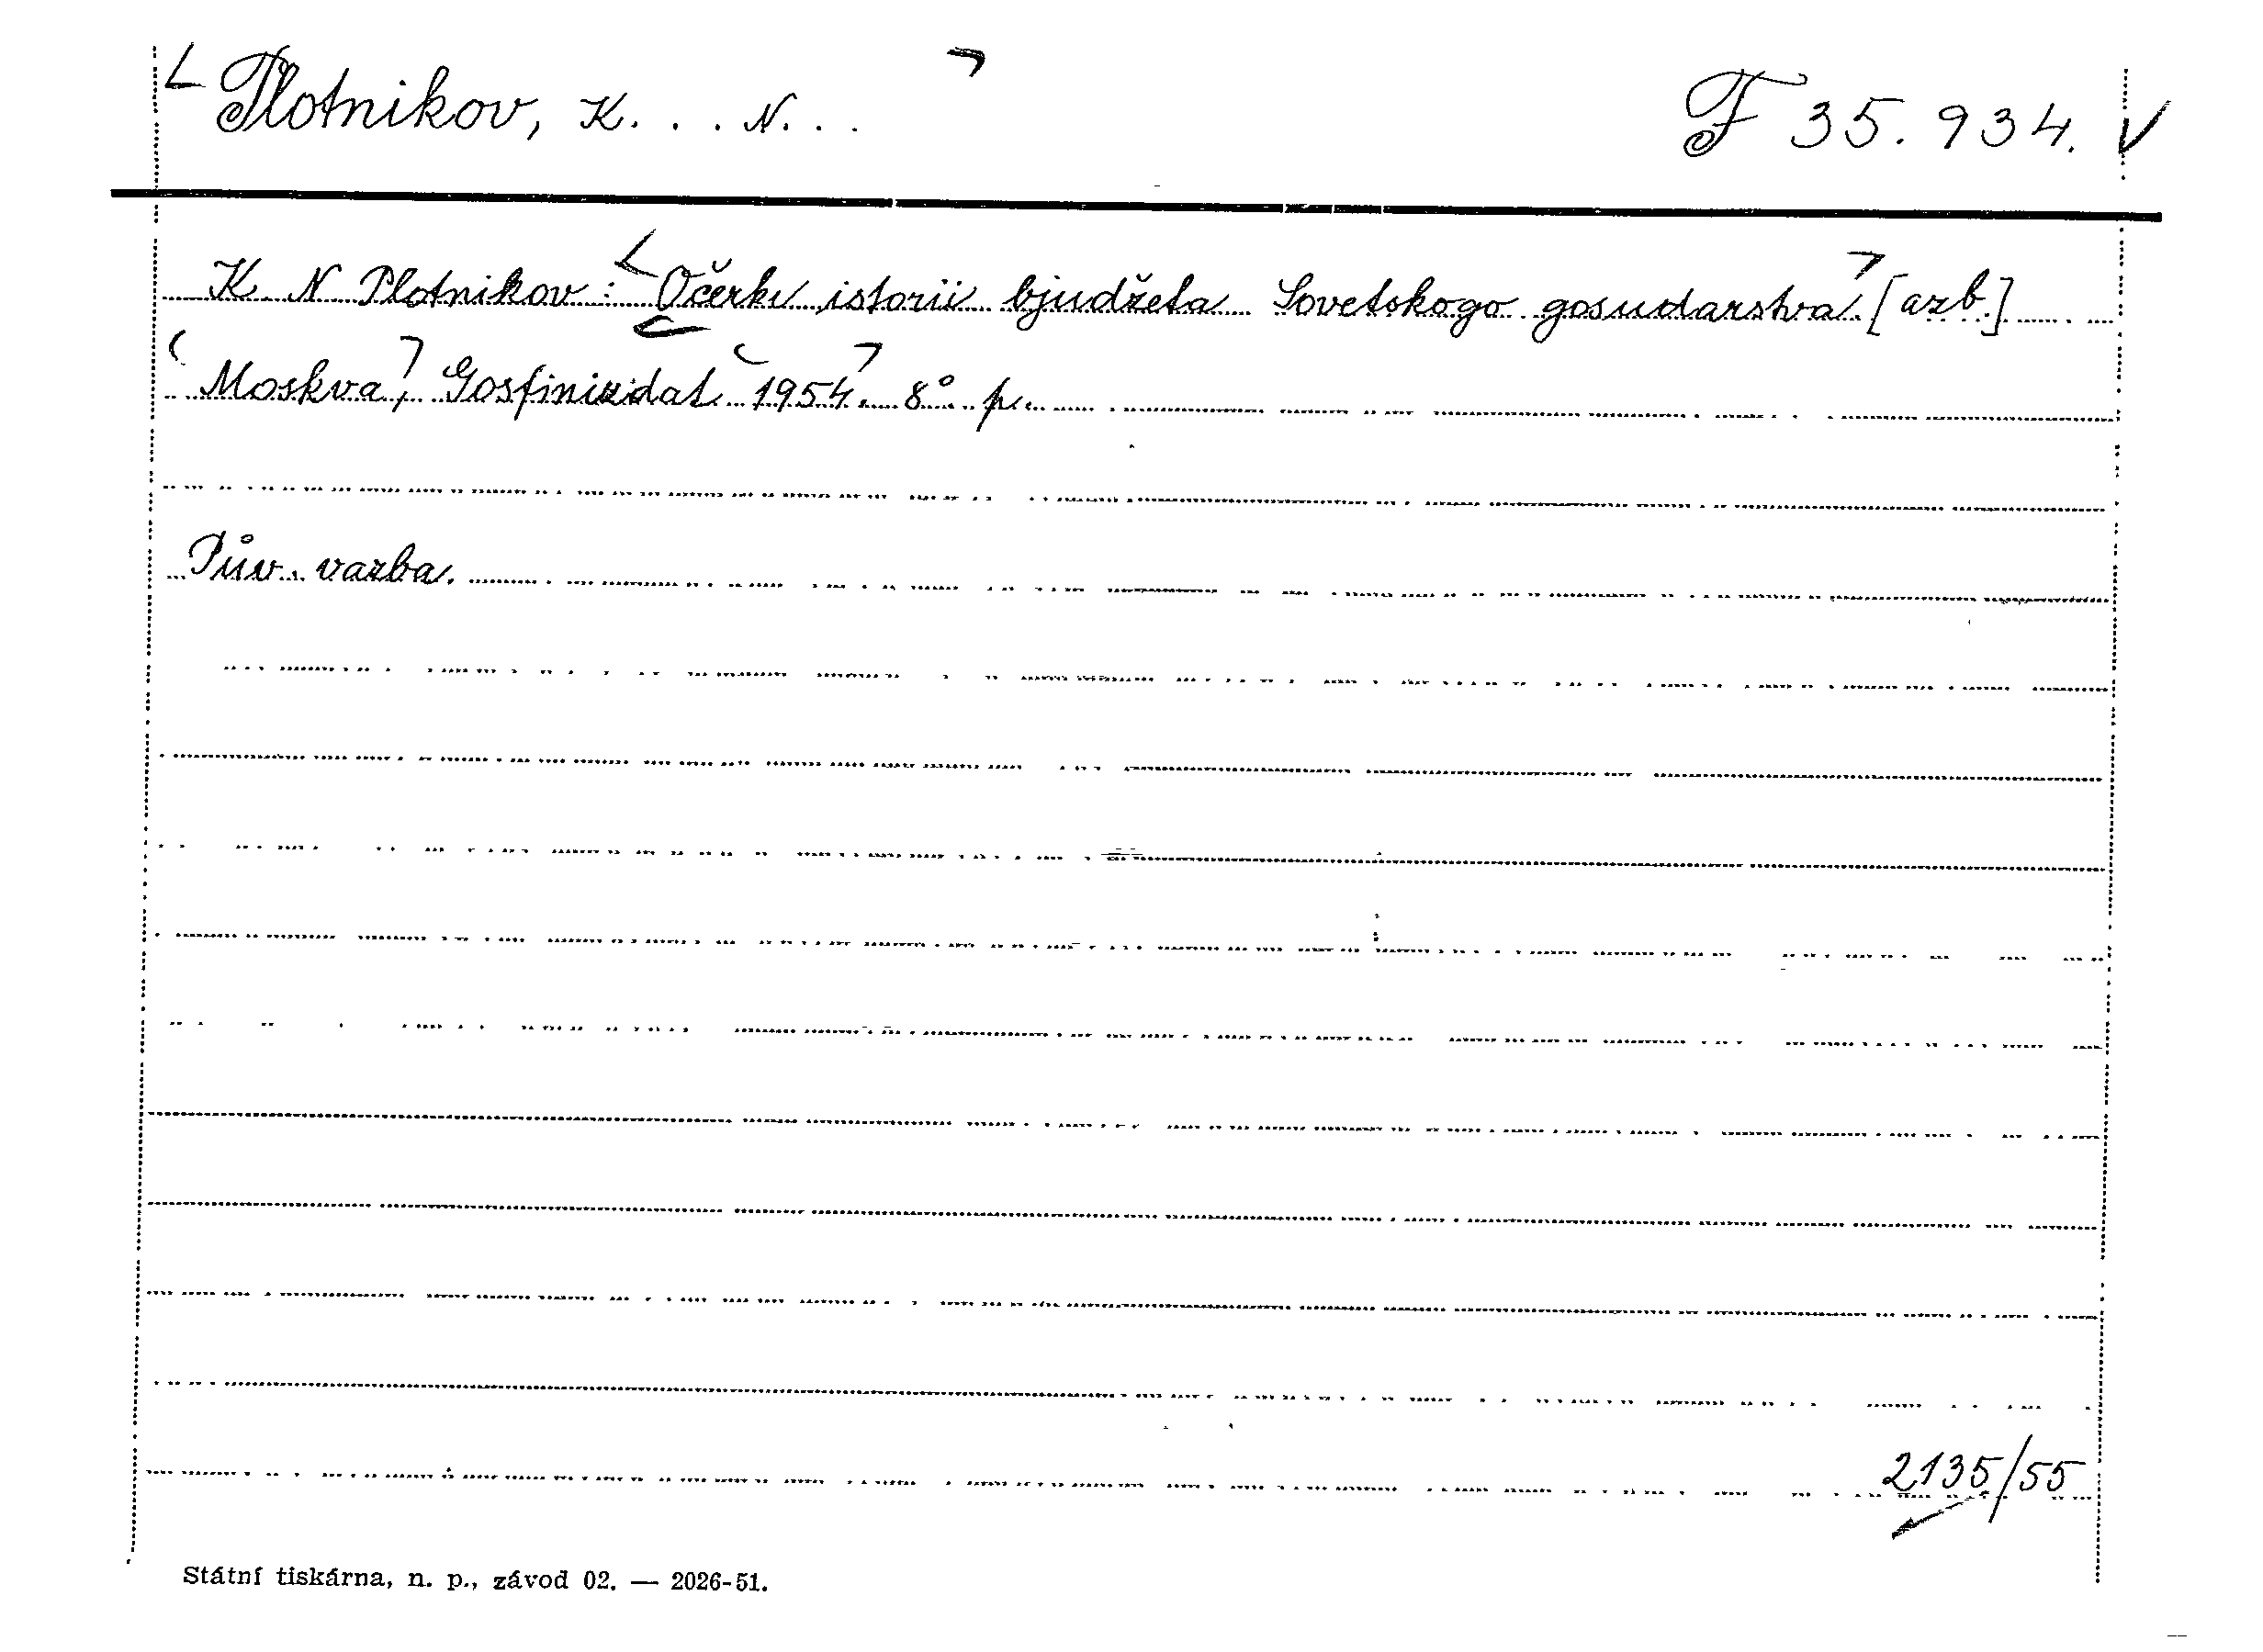 Plotnikov, K. . . N. . . F 35.934.
K. N Plotnikov: Očerki istorii bjudžeta Sovetskogo gosudarstva. [azb.]
Moskva, Gosfinizdat 1954. 8° p.
Pův. vazba.
2135/55
Státní tiskárna, n. p., závod 02. — 2026-51.